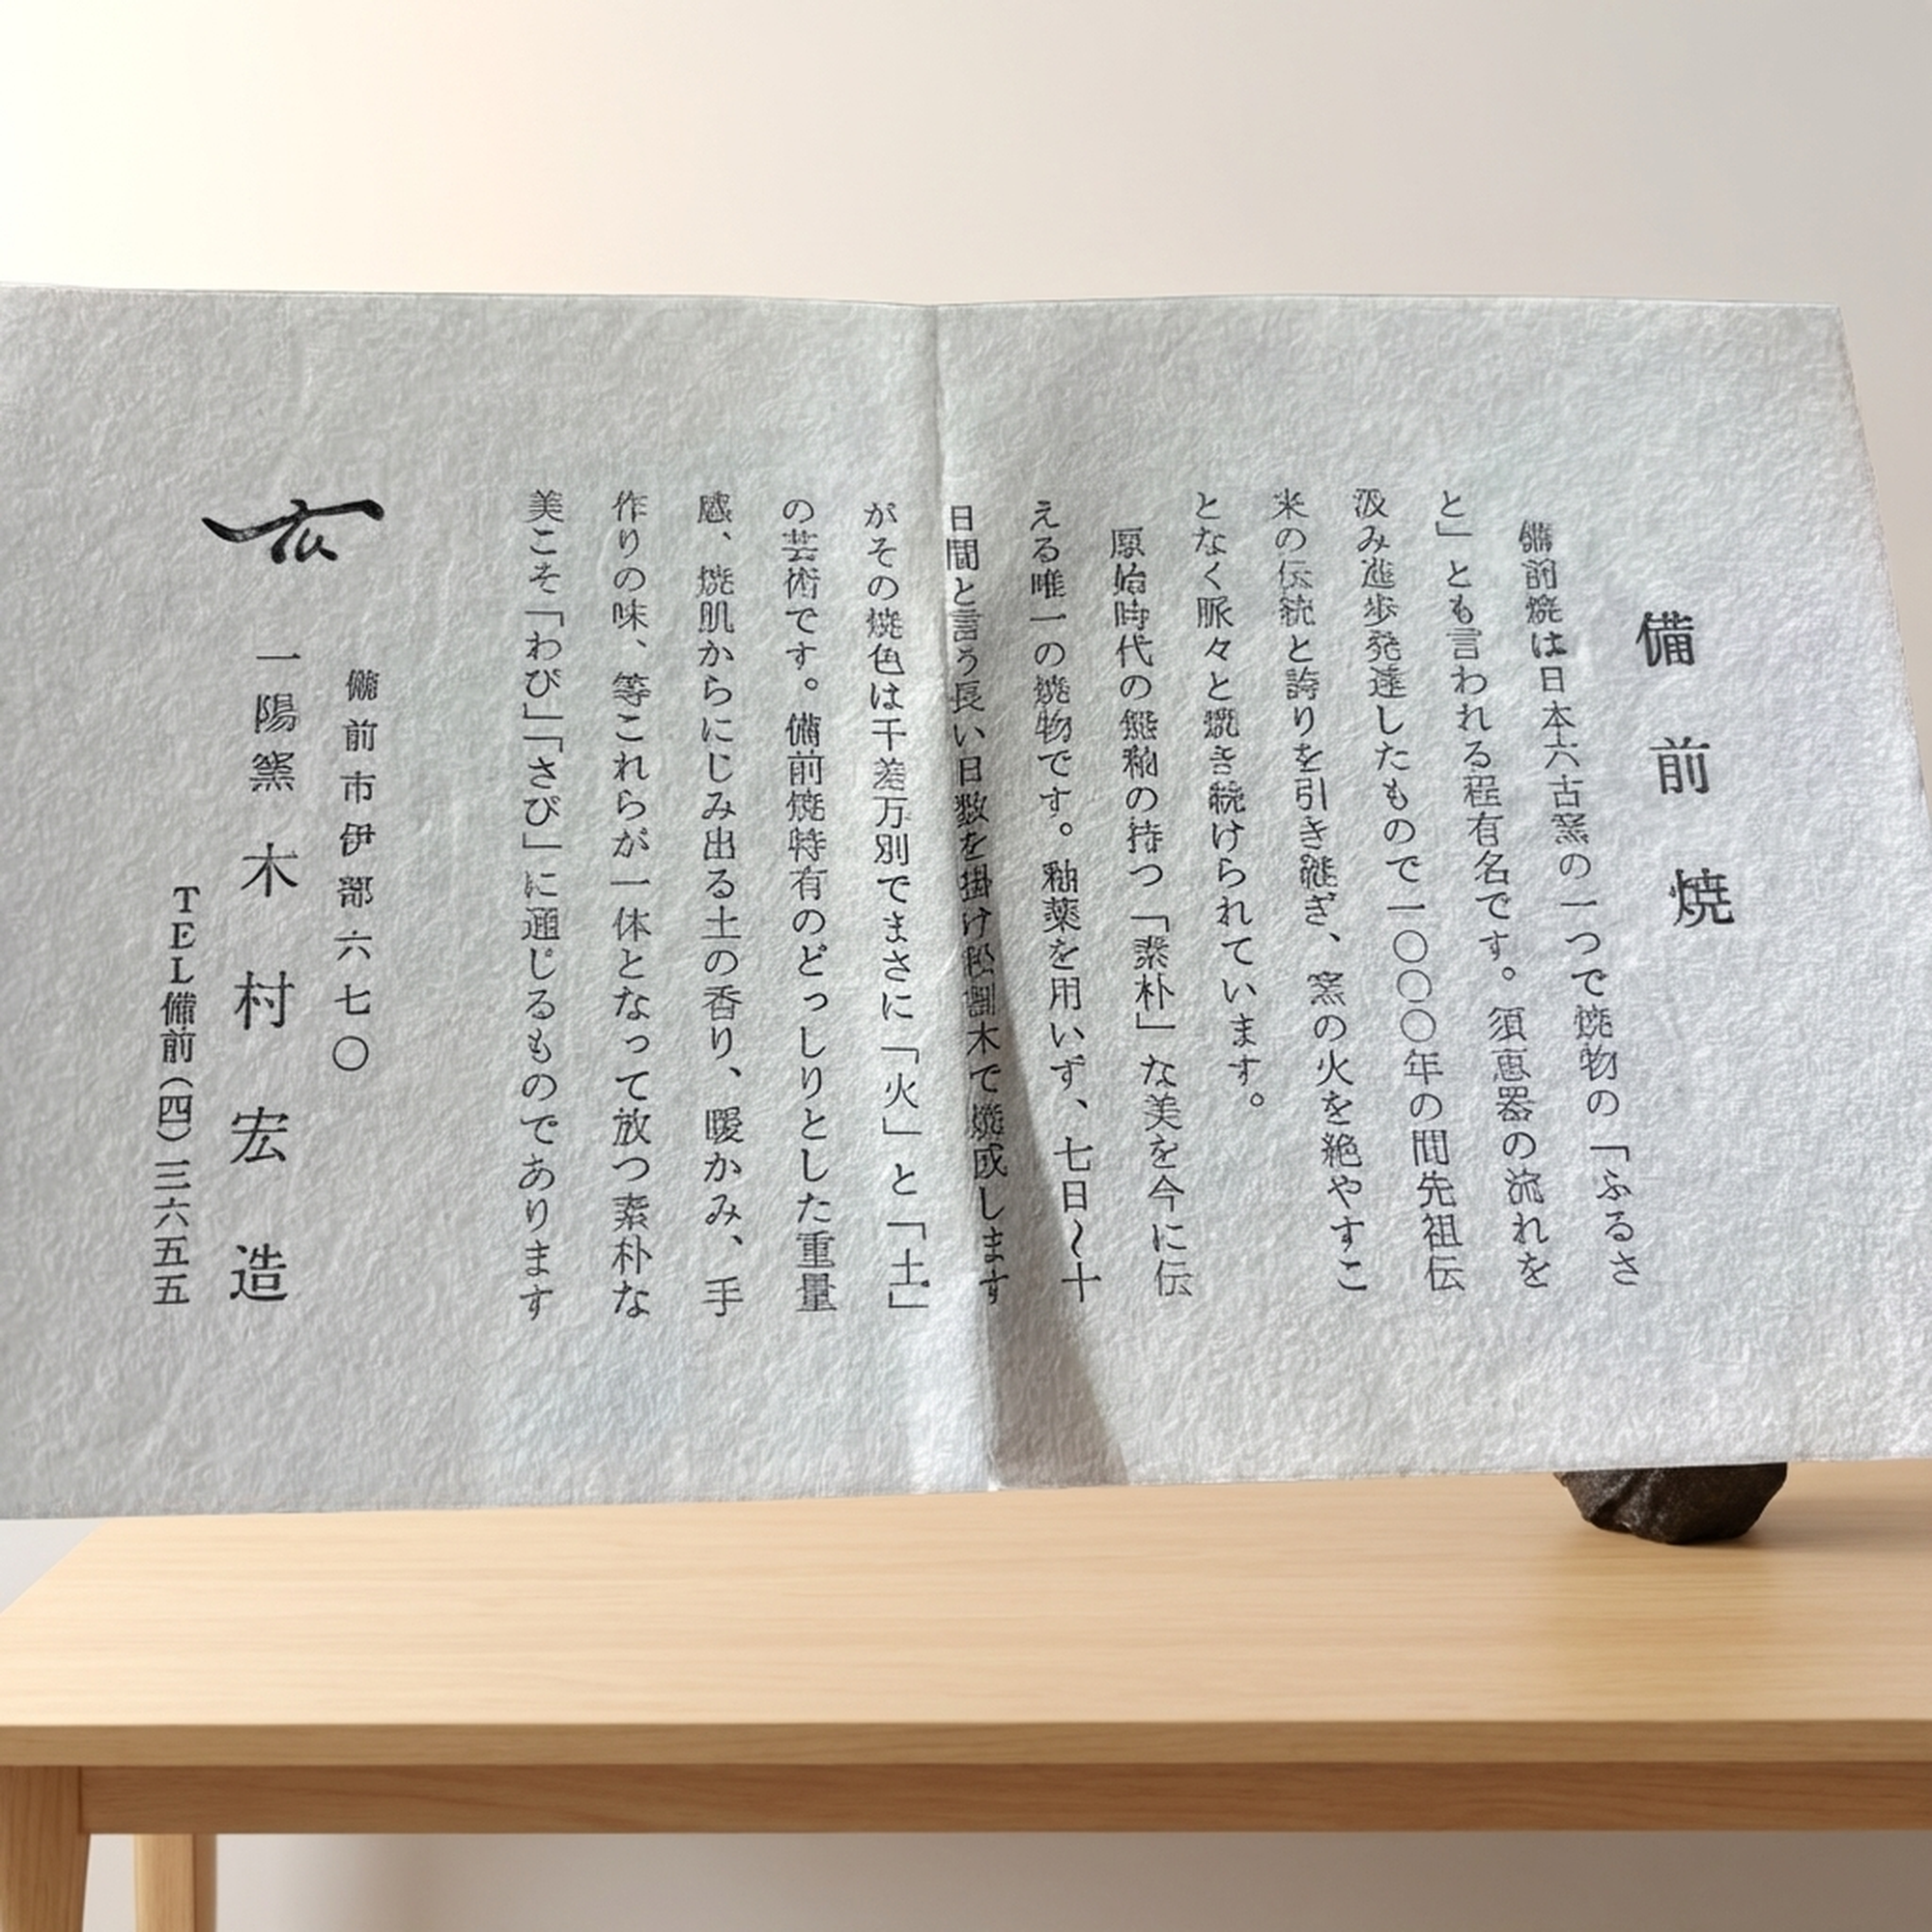 備前焼
備前焼は日本六古窯の一つで焼物の「ふるさ
と」とも言われる程有名です。須恵器の流れを
汲み進歩発達したもので一〇〇〇年の間先祖伝
来の伝統と誇りを引き継ぎ、窯の火を絶やすこ
となく脈々と焼き続けられています。
原始時代の無釉の持つ「素朴」な美を今に伝
える唯一の焼物です。釉薬を用いず、七日〜十
日間と言う長い日数を掛け松割木で焼成します
がその焼色は千差万別でまさに「火」と「土」
の芸術です。備前焼特有のどっしりとした重量
感、焼肌からにじみ出る土の香り、暖かみ、手
作りの味、等これらが一体となって放つ素朴な
美こそ「わび」「さび」に通じるものであります
備前市伊部六七〇
一陽窯 木村宏造
TEL備前(四)三六五五